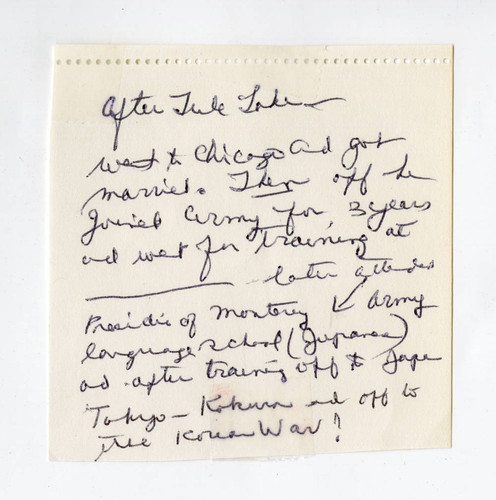 After Tule Lake —
went to Chicago and got
married. Then off he
Joined Army for 3 years
and went for training at
later attended
Presidio of Monterey ↙ Army
language school (Japanese)
and after training off to Japan
Tokyo – Kokura and off to
the Korean War!